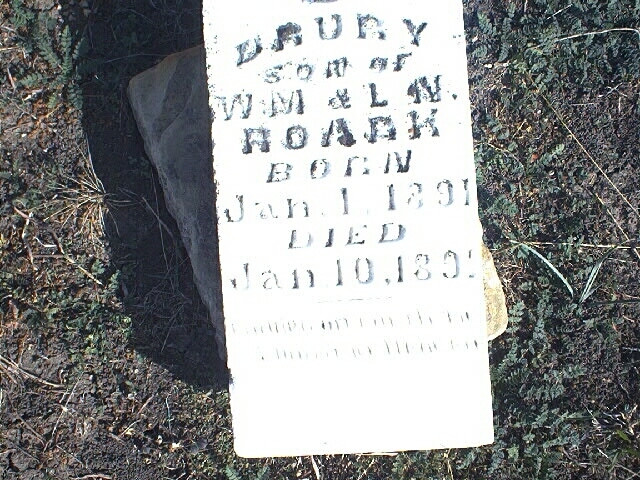 DRURY
SON OF
W.M & L.N.
ROARK
BORN
Jan. 1, 1891
DIED
Jan. 10, 189
on